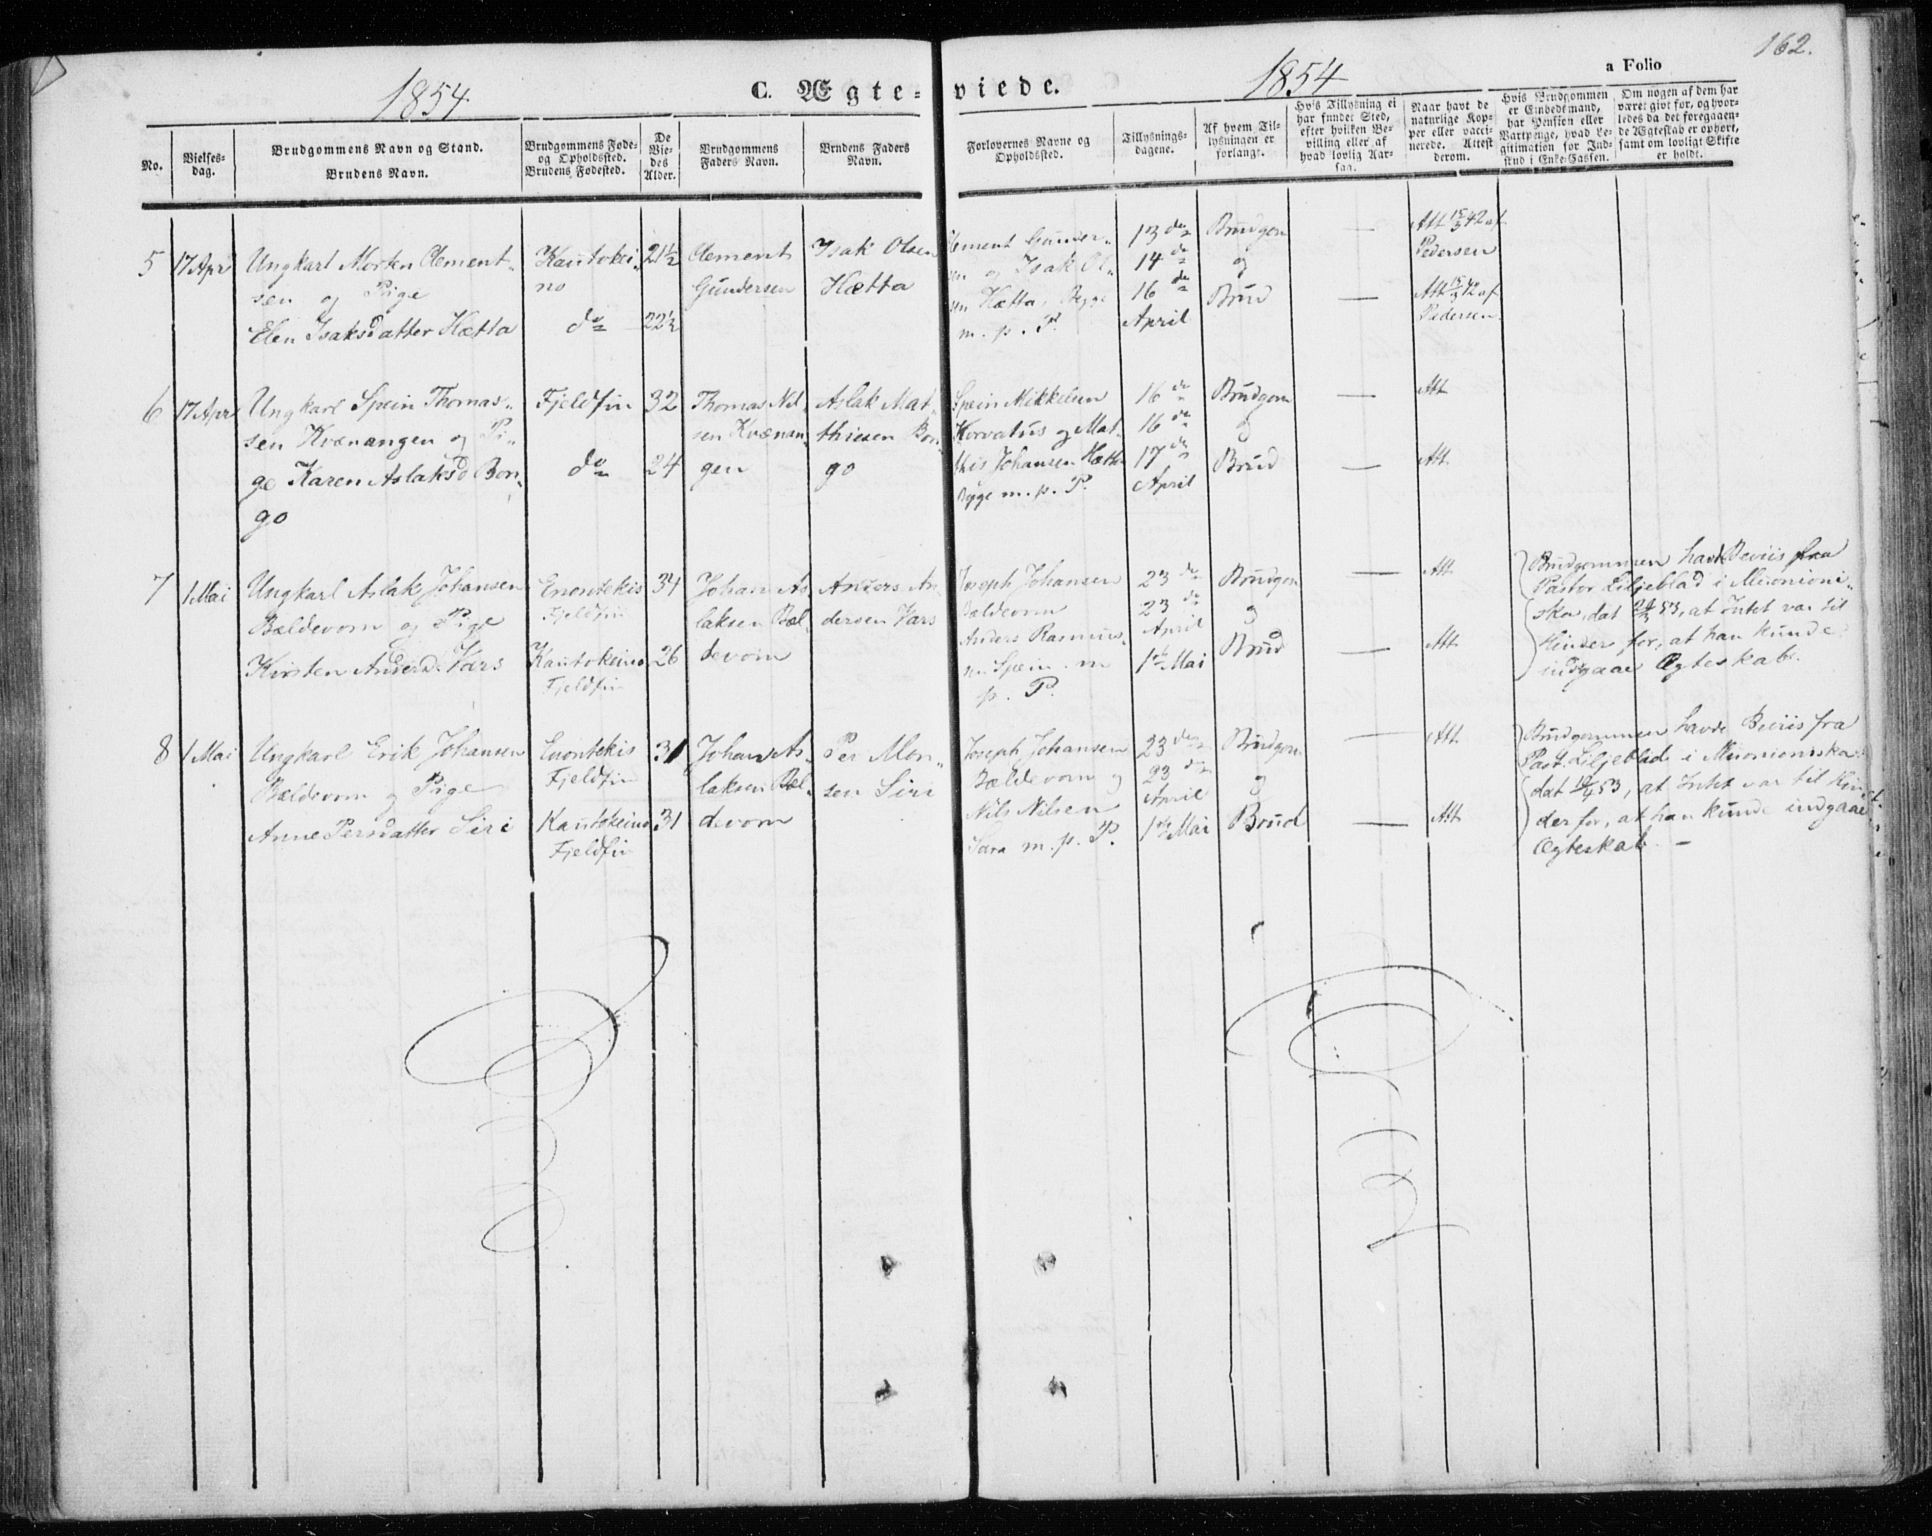 162.
1854
C. Ægte=
viede.
1854
a Folio
No.
Vielses-
dag.
Brudgommens Navn og Stand.
Brudens Navn.
Brudgommens Føde-
og Opholdssted.
Brudens Fødested.
De
Vie-
des
Alder.
Brudgommens
Faders Navn.
Brudens Faders
Navn.
Forlovernes Navne og
Opholdssted.
Tillysnings-
dagene.
Af hvem Til-
lysningen er
forlangt.
Hvis Tillysning ei
har fundet Sted,
efter hvilken Be-
villing eller af
hvad lovlig Aar-
sag.
Naar havt de
naturlige Kop-
per eller vacci-
nerede. Attest
derom.
Hvis Brudgommen
er Embedsmand,
har Pension eller
Vartpenge, hvad Le-
gitimation for Ind-
skud i Enke-Cassen.
Om nogen af dem har
været givt før, og hvor-
ledes da det foregaaen-
de Ægteskab er ophørt,
samt om lovligt Skifte
er holdt.
5
17 Apr
Ungkarl Morten Clement-
sen og Pige
Elen Isaksdatter Hætta
Kautokei-
no
do
21½
22½
Clement
Gundersen
Isak Olsen
Hætta
Clement Gunder-
sen og Isak Ol-
sen Hætta, Begge
m. p. P.
13 de
14 de
16 de
April
Brudgom
og
Brud
—
—
Att 15/3 42 af
Pedersen
Att 15/3 42 af
Pedersen
6
17 Apr
Ungkarl Spein Thomas-
sen Kvænangen og Pi-
ge Karen Aslaksd Bon-
go
Fjeldfin
do
32
24
Thomas Nil-
sen Kvænan-
gen
Aslak Mat-
thiesen Bon-
go
Spein Mikkelsen
Korvatus og Mat-
this Johansen Hætta
Begge m. p. P.
16 de
16 de
17 de
April
Brudgom
og
Brud
—
—
Att.
Att.
7
1 Mai
Ungkarl Aslak Johansen
Bældevom og Pige
Kirsten Andersd. Vars
Enontekis
Fjeldfin
Kautokeino
Fjeldfin
34
26
Johan As-
laksen Bæl-
devom
Anders An-
dersen Vars
Joseph Johansen
Bældevom
Anders Rasmus-
sen Spein. m
p. P.
23 de
23 de
April
1ste Mai
Brudgom
og
Brud
—
—
Att.
Att.
Brudgommen havde Beviis fra
Pastor Liljeblad i Muonioni-
ska, dat 53, at Intet var til
Hinder for, at han kunde
indgaae Ægteskab.
8
1 Mai
Ungkarl Erik Johansen
Bældevom og Pige
Anne Persdatter Siri
Enontekis
Fjeldfin
Kautokeino
Fjeldfin
31
31
Johan As-
laksen Bæl-
devom
Per Mon-
sen Siri
Joseph Johansen
Bældevom og
Nils Nilsen
Sara m. p. P.
23 de
23 de
April
1ste Mai
Brudgom
og
Brud
—
—
Att.
Att.
Brudgommen havde Beviis fra
Past. Liljeblad i Muonioniska
dat 53, at Intet var til Hin-
der for, at han kunde indgaae
Ægteskab. —